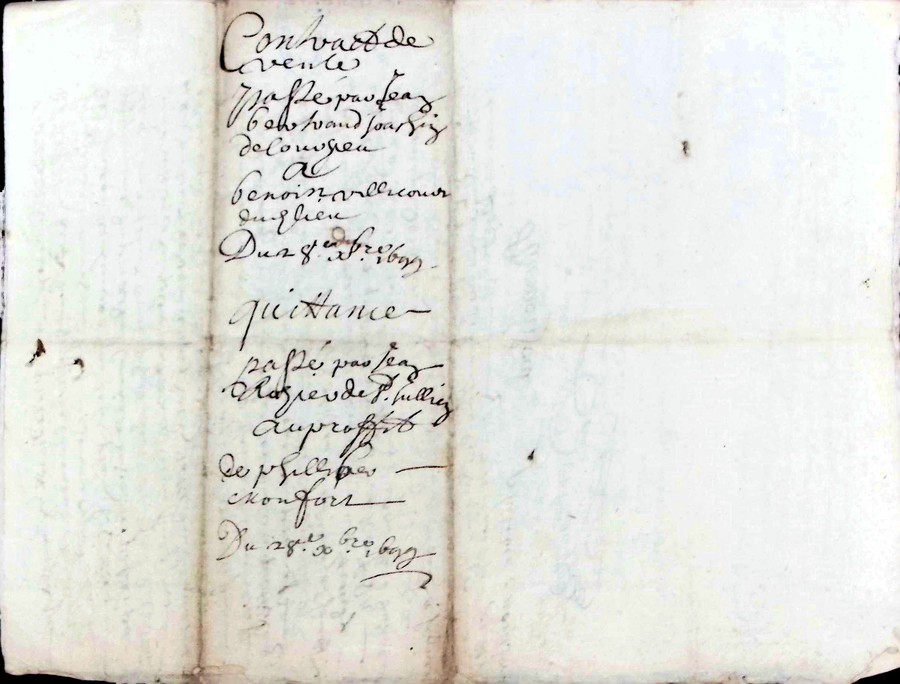 Contract de
vente
passé par Jean
bertrand Joachin
de Courzieu
A
benoist villecourt
dud lieu
Du 28e xbre 1699
quittance
passé par Jean
Rozier de St Jullien
au proffit
de phillibes
Monfort
Du 28e xbre 1699